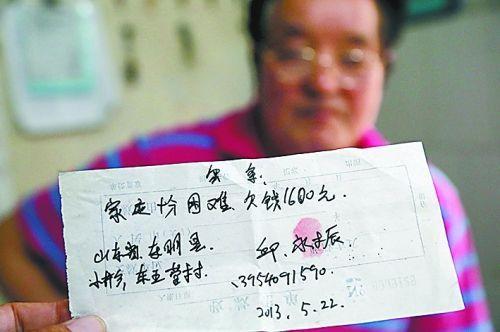 欠条.
家庭十分困难.欠钱1600元.
山东省.东明县.
小井乡,东五营村.
邱
13954091590.
2013.5.22.